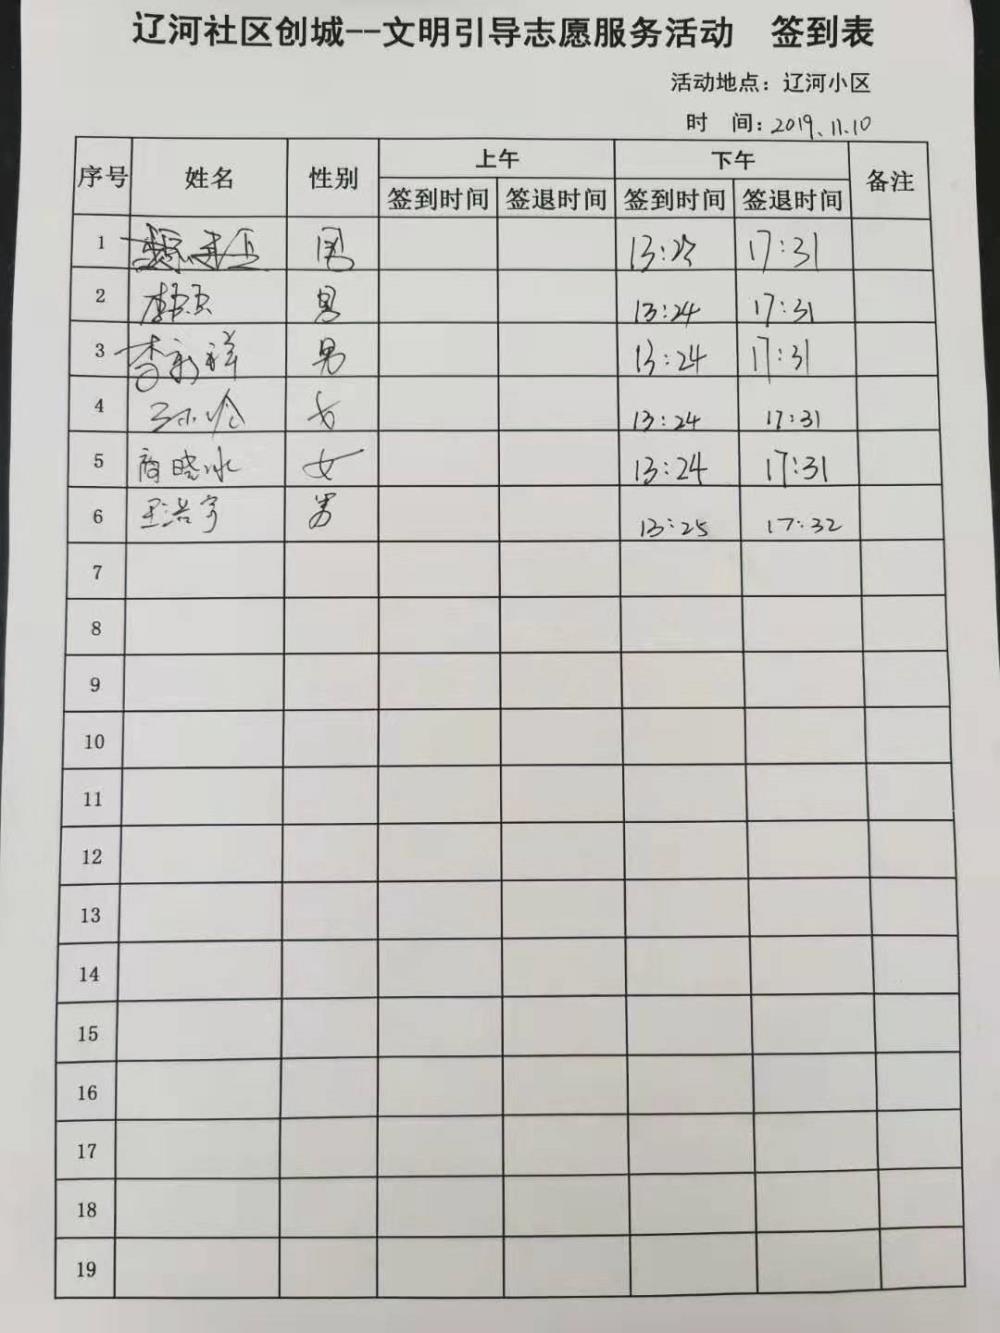 辽河社区创城--文明引导志愿服务活动 签到表
活动地点：辽河小区
时 间：2019.11.10
序号 姓名 性别 上午 下午 备注
签到时间 签退时间 签到时间 签退时间
1 男 17:31
2 男 13:24 17:31
3 李新祥 男 13:24 17:31
4 女 13:24 17:31
5 商晓冰 女 13:24 17:31
6 王浩宇 男 13:25 17:32
7
8
9
10
11
12
13
14
15
16
17
18
19